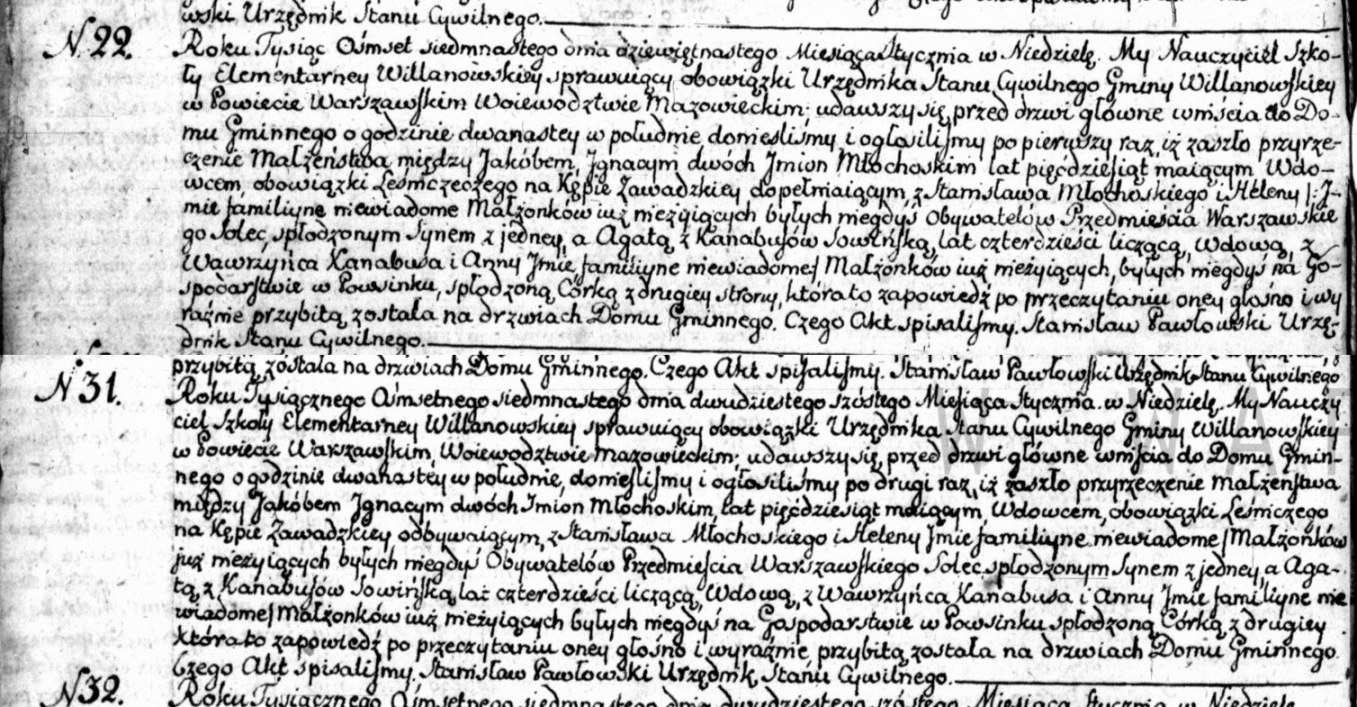 wski Urzędnik Stanu Cywilnego.
N. 22. Roku Tysiąc Osmset siedmnastego dnia dziewiętnastego Miesiąca Stycznia w Niedzielę. My Nauczyciel Szko-
ły Elementarney Willanowskiey sprawuiący obowiązki Urzędnika Stanu Cywilnego Gminy Willanowskiey
w Powiecie Warszawskim Woiewodztwie Mazowieckim; udawszy się przed drzwi główne wniścia do Do-
mu Gminnego o godzinie dwanastey w południe donieśliśmy i ogłosiliśmy po pierwszy raz, iż zaszło przyrze-
czenie Małżeństwa między Jakóbem, Ignacym dwóch Jmion Młochoskim lat pięćdziesiąt maiącym, Wdo-
wcem, obowiązki Leśniczeczego na Kępie Zawadzkiey dopełniaiącym, z Stanisława Młochoskiego i Heleny /: J-
mie familiyne niewiadome Małżonków iuż nieżyiących byłych niegdyś Obywatelów Przedmieścia Warszawskie
go Solec, spłodzonym Synem z jedney, a Agatą, z Kanabusów Sowińską, lat czterdzieści liczącą, Wdową, z
Wawrzyńca Kanabusa i Anny Jmie, familiyne niewiadomej Małżonków iuż nieżyiących, byłych niegdyś na Go-
spodarstwie w Powsinku, spłodzoną Córką z drugiey strony, która to zapowiedź po przeczytaniu oney głośno i wy
raźnie przybitą została na drzwiach Domu Gminnego. Czego Akt spisaliśmy. Stanisław Pawłowski Urzę-
dnik Stanu Cywilnego.
przybitą została na drzwiach Domu Gminnego. Czego Akt spisaliśmy. Stanisław Pawłowski Urzędnik Stanu Cywilnego
N 31. Roku Tysiącznego Osmsetnego siedmnastego dnia dwudziestego szóstego Miesiąca Stycznia w Niedzielę. My Nauczy
ciel Szkoły Elementarney Willanowskiey sprawuiący obowiązki Urzędnika Stanu Cywilnego Gminy Willanowskiey
w Powiecie Warszawskim, Woiewodztwie Mazowieckim; udawszy się przed drzwi główne wniścia do Domu Gmin-
nego o godzinie dwanastey w południe, donieśliśmy i ogłosiliśmy po drugi raz, iż zaszło przyrzeczenie Małżeństwa
między Jakóbem Ignacym dwóch Jmion Młochoskim, lat pięćdziesiąt maiącym, Wdowcem, obowiązki Leśniczego
na Kępie Zawadzkiey odbywaiącym, z Stanisława Młochoskiego i Heleny Jmie familiyne niewiadomej Małżonków
już nieżyiących byłych niegdyś Obywatelów Przedmieścia Warszawskiego Solec spłodzonym Synem z jedney, a Aga-
tą, z Kanabusów Sowińską, lat czterdzieści liczącą, Wdową, z Wawrzyńca Kanabusa i Anny Jmie familiyne nie
wiadomej Małżonków iuż, nieżyiących byłych niegdyś na Gospodarstwie w Powsinku spłodzoną Córką z drugiey
która to zapowiedź po przeczytaniu oney głośno i wyraźnie przybitą została na drzwiach Domu Gminnego.
Czego Akt spisaliśmy. Stanisław Pawłowski Urzędnik, Stanu Cywilnego.
N 32. Roku Tysiącznego Osmsetnego siedmnastego dnia dwudziestego szóstego Miesiąca Stycznia w Niedzielę